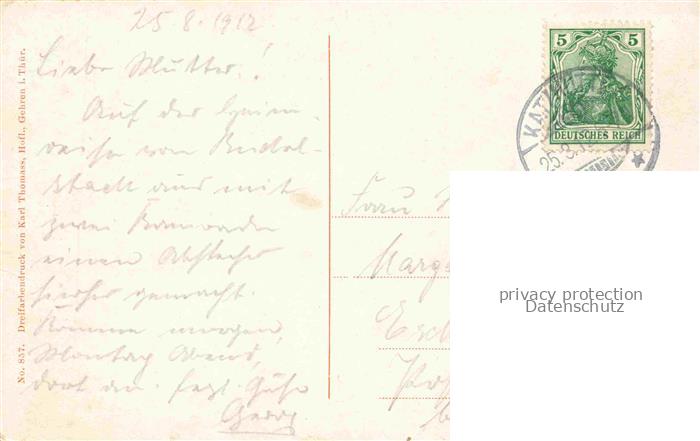 25.8.1912
Liebe Mutter!
Auf der Heim-
reise von Rudol-
stadt aus mit
zwei Kameraden
einen Abstecher
hierher gemacht.
Komme morgen,
Montag Abend,
dort an. Herzl. Grüße
Georg
No. 857. Dreifarbendruck von Karl Thomass, Hofl., Gehren i. Thür.
5 5
DEUTSCHES REICH
KATZ
25.8.12
Frau
privacy protection
Datenschutz